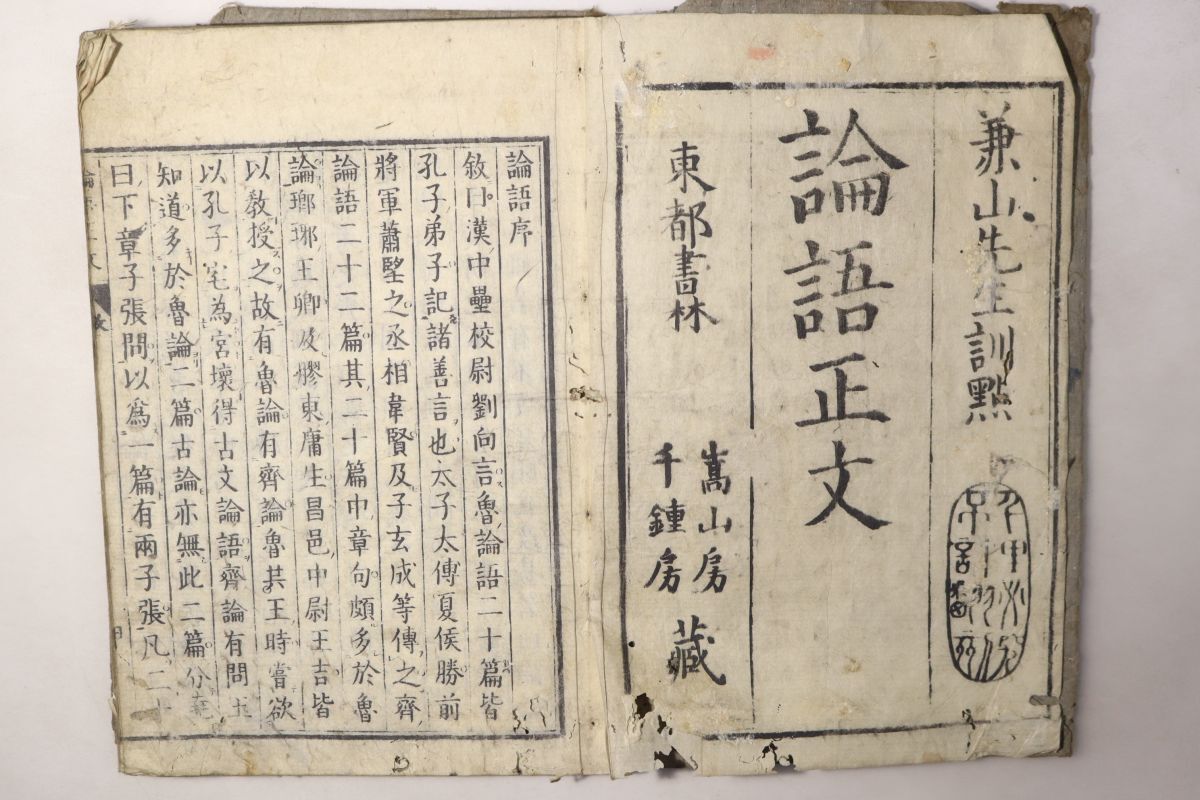 兼山先生訓點
論語正文
東都書林
嵩山房
千鍾房
藏
論語序
敘曰漢中壘校尉劉向言魯論語二十篇皆
孔子弟子記諸善言也太子太傅夏侯勝前
將軍蕭望之丞相韋賢及子玄成等傳之齊
論語二十二篇其二十篇中章句頗多於魯
論瑯琊王卿及膠東庸生昌邑中尉王吉皆
以教授之故有魯論有齊論魯共王時嘗欲
以孔子宅為宮壞得古文論語齊論有問王
知道多於魯論二篇古論亦無此二篇分堯
曰下章子張問以爲一篇有兩子張凡二十